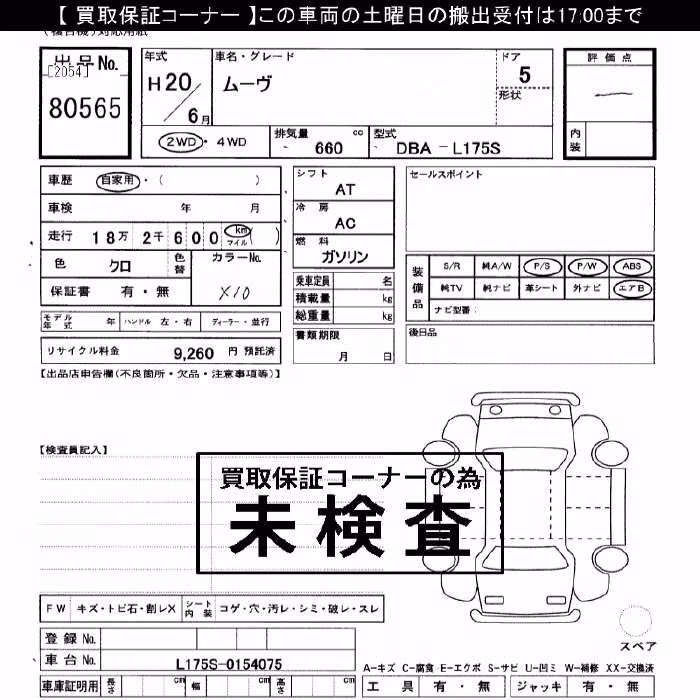 【 買取保証コーナー 】この車両の土曜日の搬出受付は17:00まで
出品No.
[2054]
80565
年式
H20
6月
車名・グレード
ムーヴ
ドア
5
形状
評価点
内装
2WD・4WD
排気量 cc
660
型式
DBA - L175S
車歴 自家用・( )
車検 年 月
走行 18万 2千600 km マイル( )
色 クロ 色替 カラーNo.
保証書 有・無 X10
シフト
AT
冷房
AC
燃料
ガソリン
乗車定員 名
積載量 kg
総重量 kg
書類期限
月 日
セールスポイント
装備品
S/R 純A/W P/S P/W ABS
純TV 純ナビ 革シート 外ナビ エアB
ナビ型番:
後日品
モデル年式 年 ハンドル 左・右 ディーラー・並行
リサイクル料金 9,260 円 預託済
【出品店申告欄(不良箇所・欠品・注意事項等)】
【検査員記入】
買取保証コーナーの為
未検査
FW キズ・トビ石・割レX シート内装 コゲ・穴・汚レ・シミ・破レ・スレ
登録No.
車台No. L175S-0154075
車庫証明用 長さ cm 幅 cm 高さ cm
スペア
A-キズ C-腐食 E-エクボ S-サビ U-凹ミ W-補修 XX-交換済
工具 有・無 ジャッキ 有・無